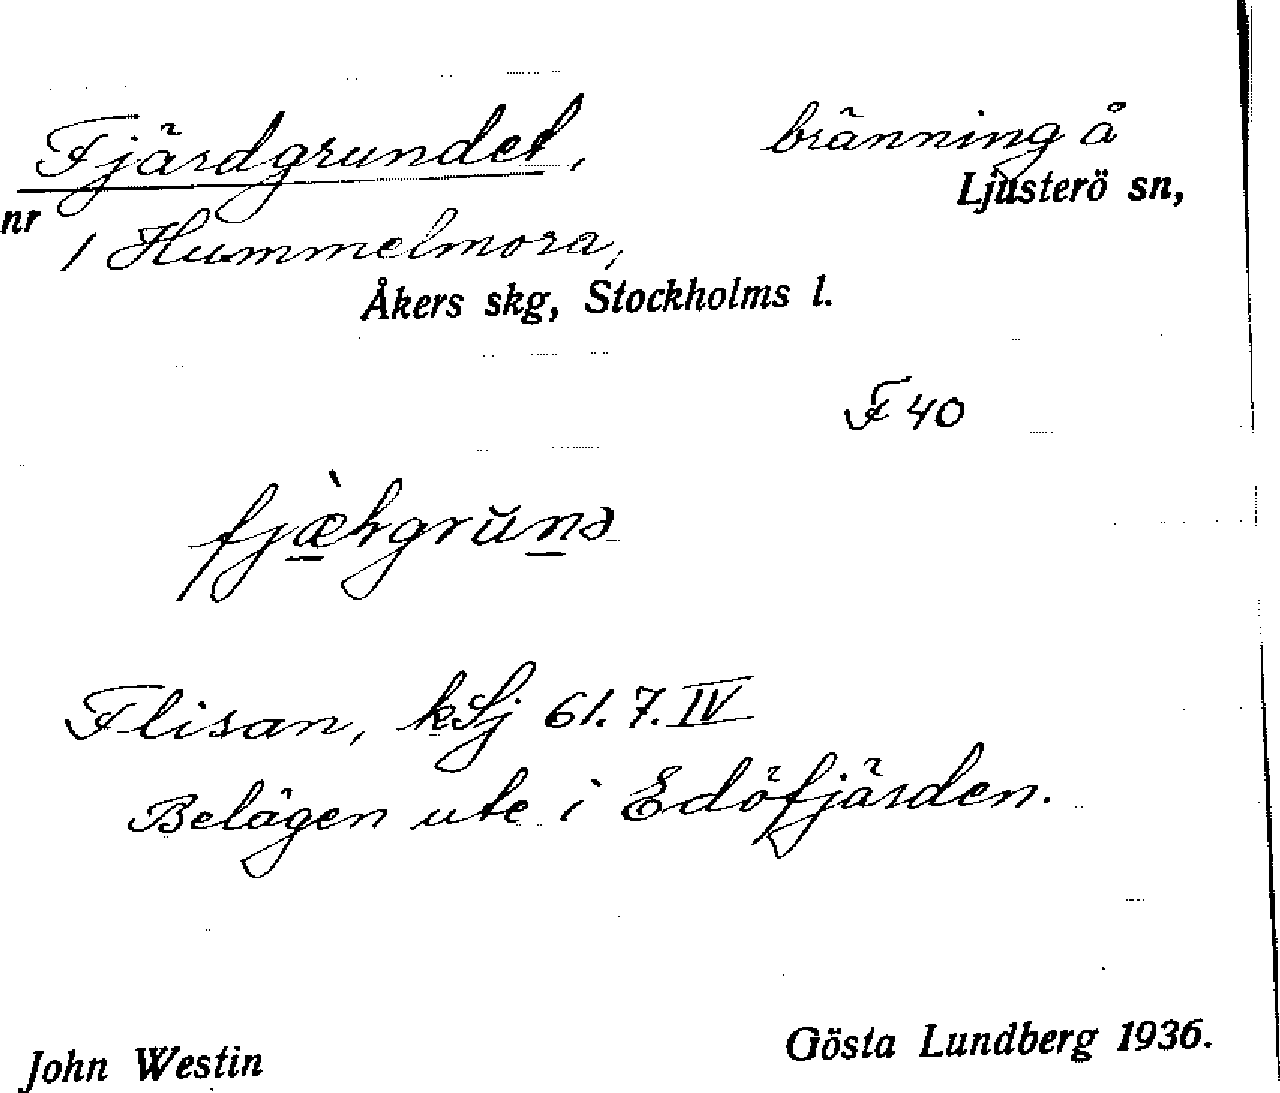 Fjärdgrundet, bränning å
Ljusterö sn,
nr 1 Hummelmora,
Åkers skg, Stockholms l.
F 40
Flisan, kSj 61.7.IV
Belägen ute i Edöfjärden.
John Westin Gösta Lundberg 1936.